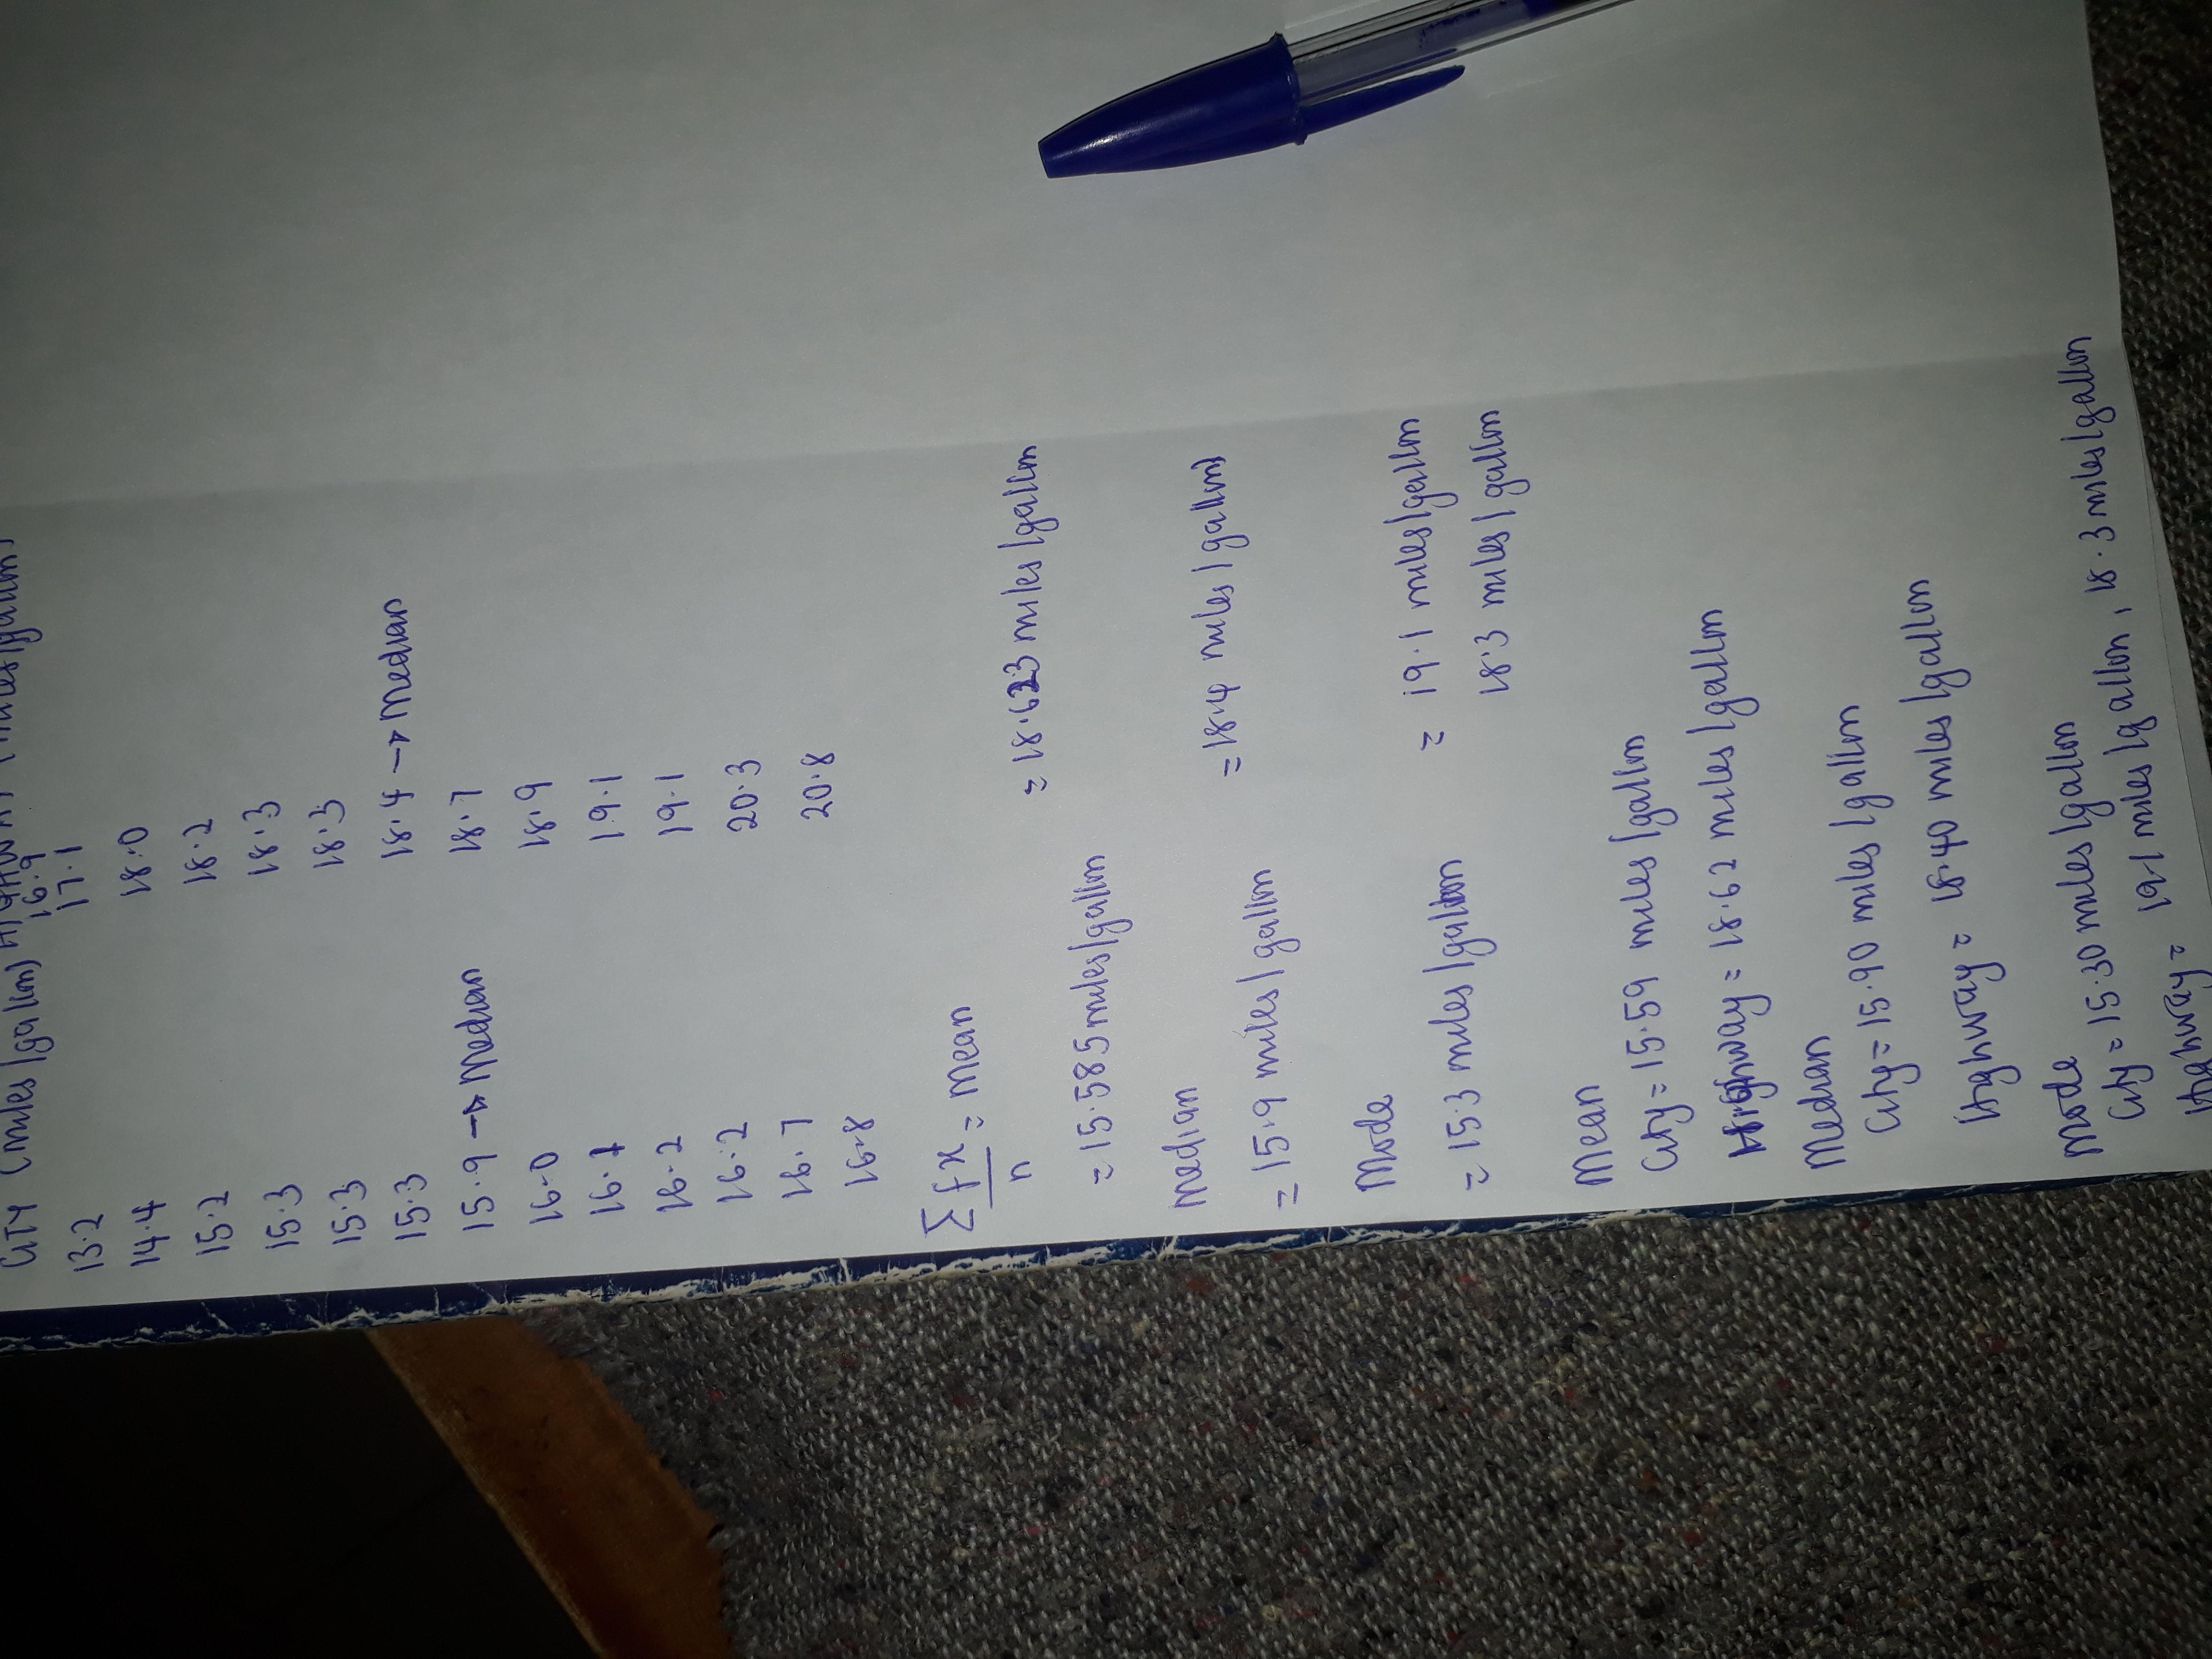 CITY (miles/gallon) HIGHWAY (miles/gallon)
13.2 16.9
14.4 17.1
15.2 18.0
15.3 18.2
15.3 18.3
15.3 18.3
15.9 → Median 18.4 → Median
16.0 18.7
16.1 18.9
16.2 19.1
16.2 19.1
16.7 20.3
16.8 20.8
∑fx/n = Mean
= 15.585 miles/gallon = 18.623 miles/gallon
Median
= 15.9 miles/gallon = 18.4 miles/gallon
Mode
= 15.3 miles/gallon = 19.1 miles/gallon
18.3 miles/gallon
Mean
City = 15.59 miles/gallon
Highway = 18.62 miles/gallon
Median
City = 15.90 miles/gallon
Highway = 18.40 miles/gallon
Mode
City = 15.30 miles/gallon
Highway = 19.1 miles/gallon, 18.3 miles/gallon